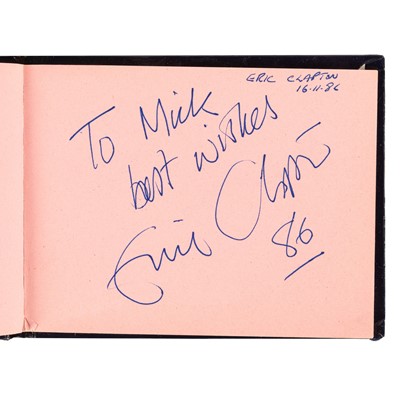 ERIC CLAPTON
16.11.86
To Mick
best wishes
Eric Clapton
86